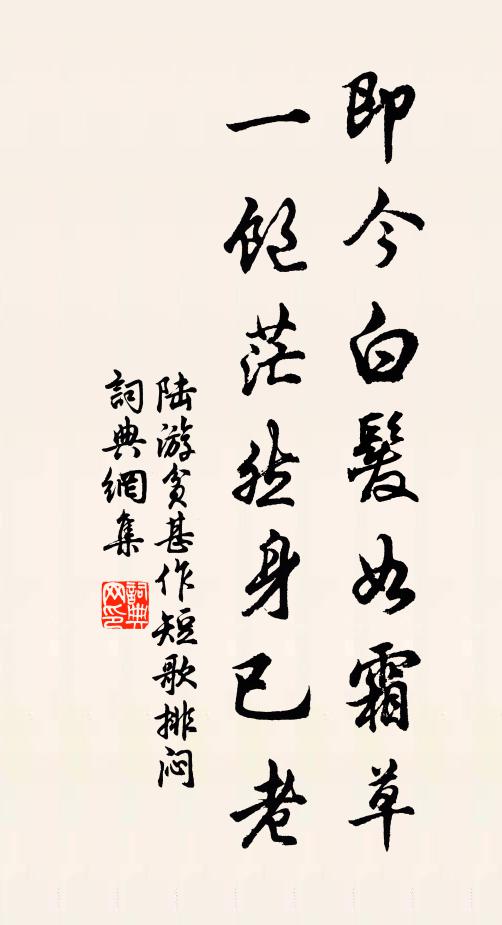 即今白髮如霜草
一飽茫然身已老
陆游貧甚作短歌排闷
詞典網集
詞典网印